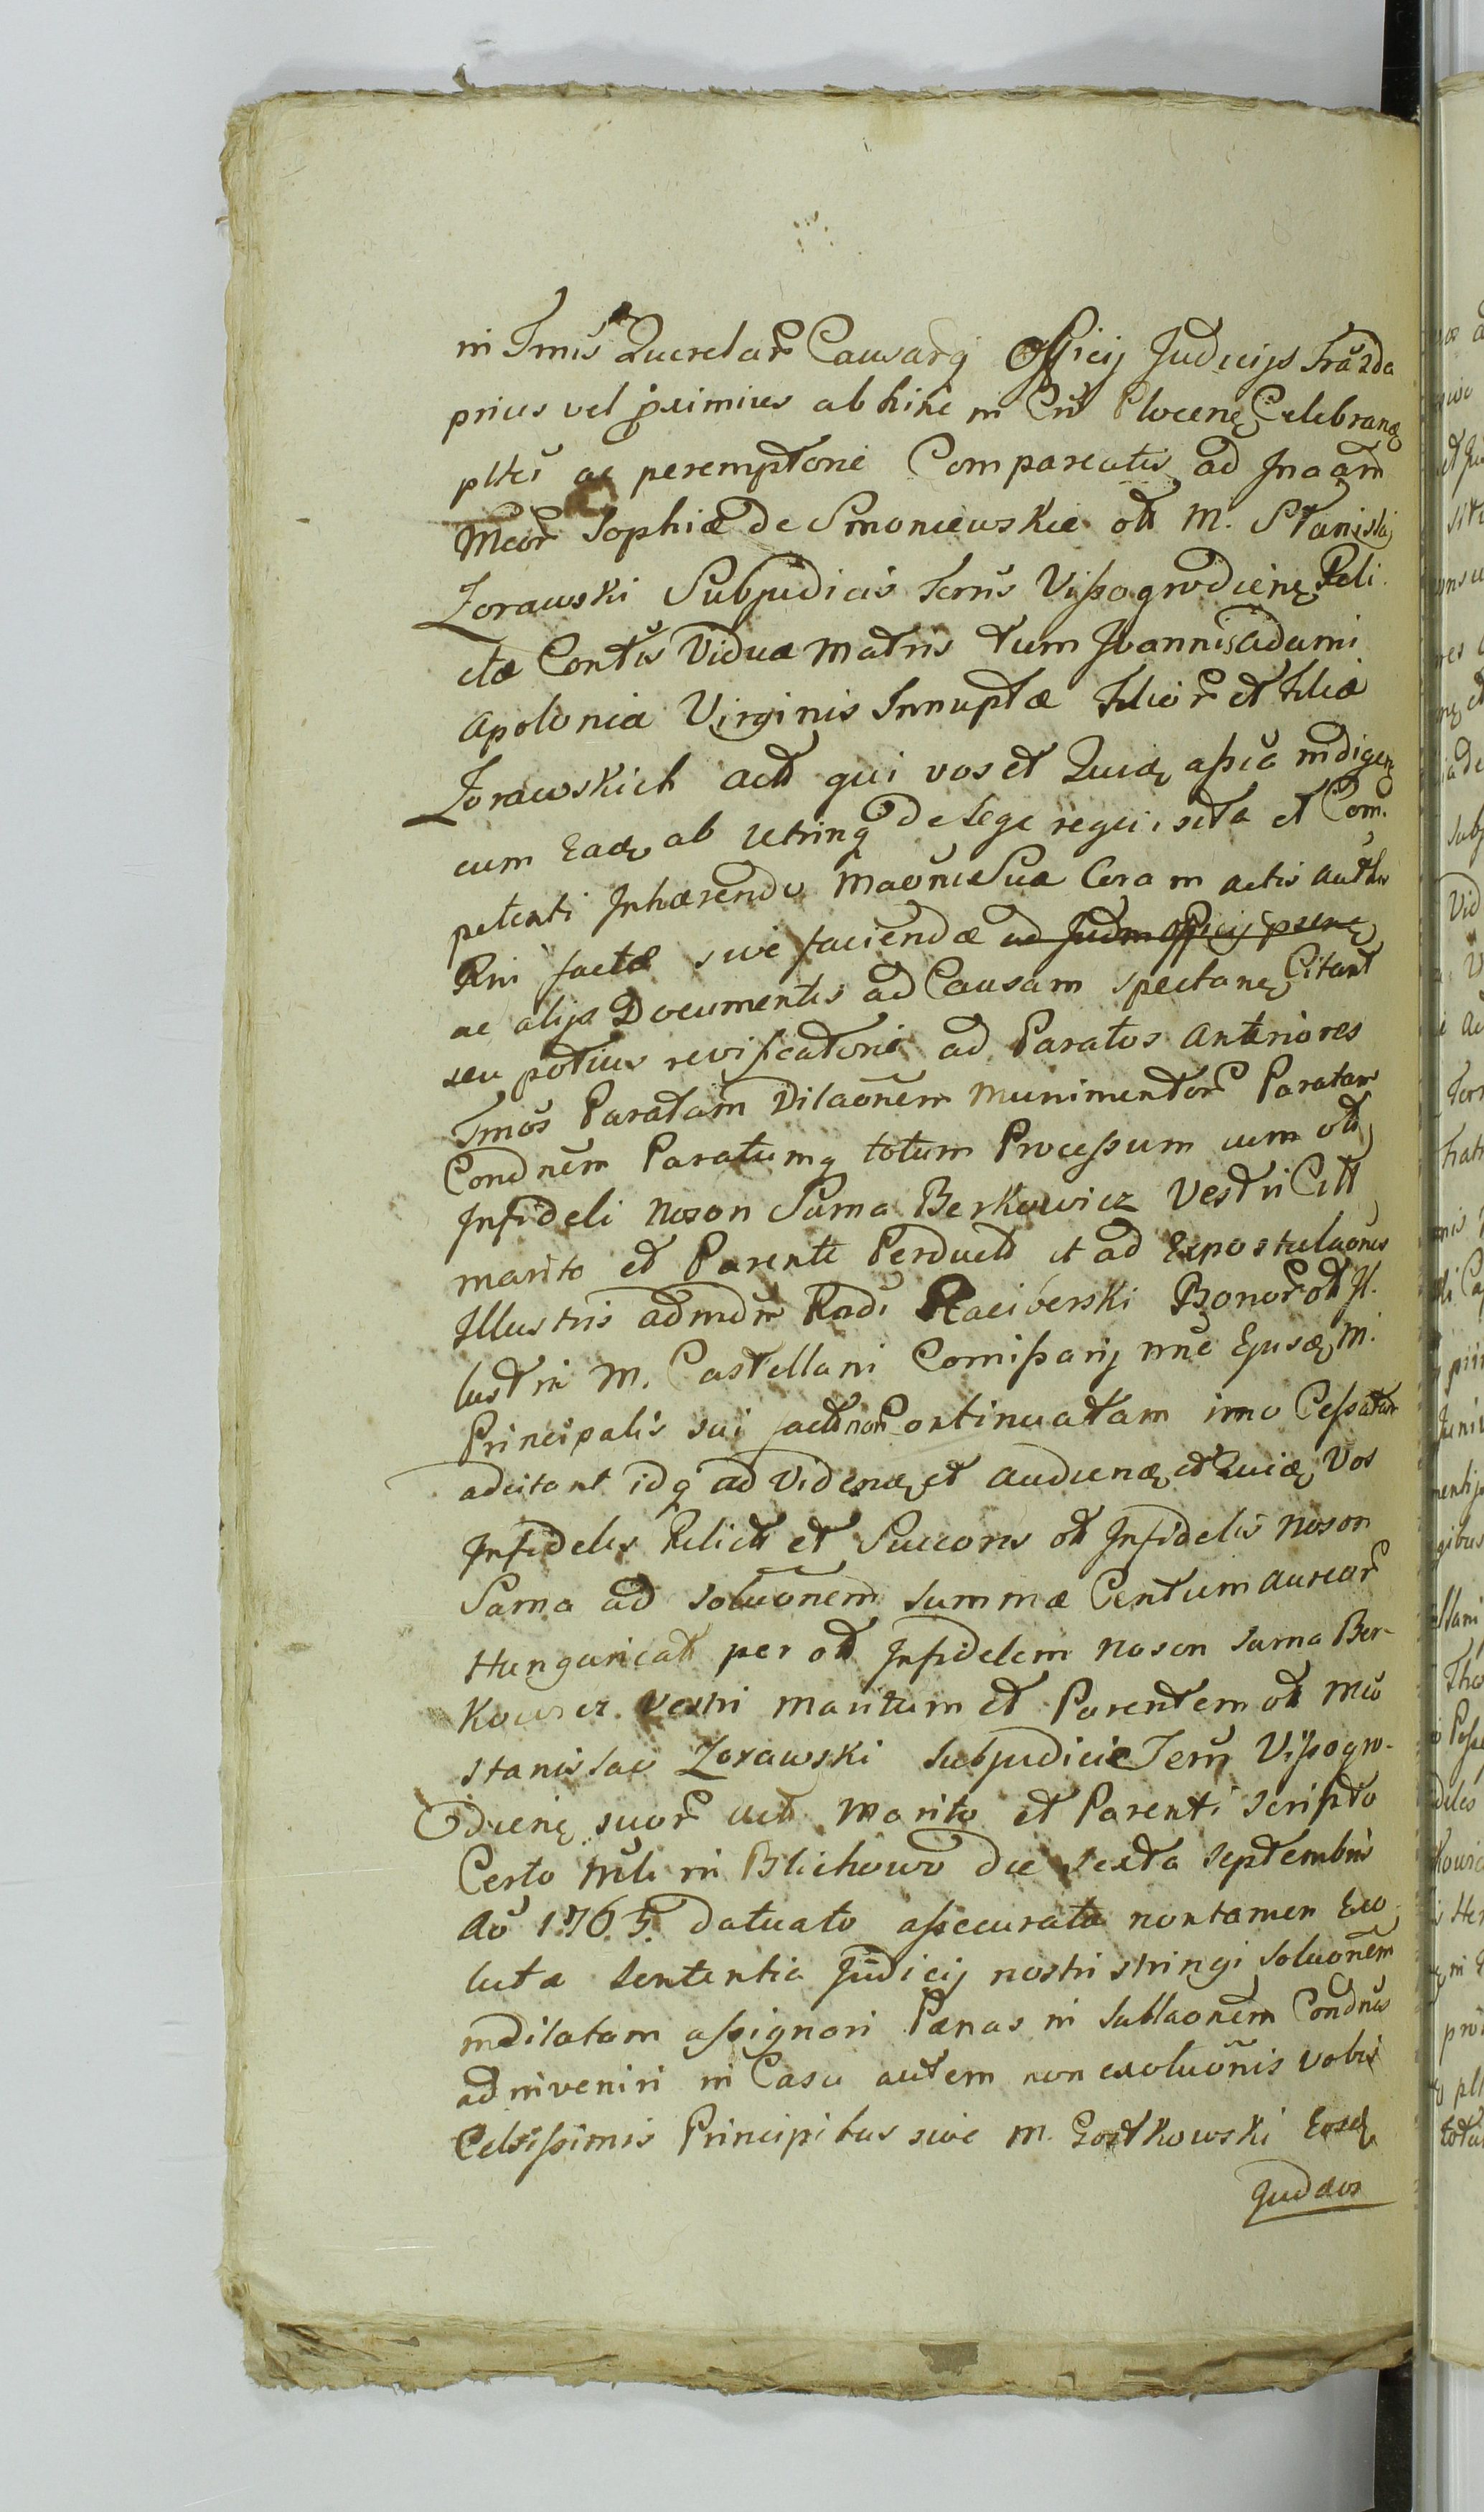 in Tmis Querelar Causarq Officij Judicijs
prius vel pximius ab hinc in Cu Plocenę Celebraną
pltr ac peremptorie Compareatis ad
Mcor Sophiæ de Smoniewskie ott M. Stanislai
Zorawski Subjudicis Terris Vißogrodienę Reli
ctæ Contis Viduæ Matris tum Joannis Adami
Apoloniæ Virginis Innuptæ Filior et Filiæ
Zorawskich actt qui vos et Quia apia indigenę
cum Ead ab utrinq de Lege requisita et Com-
petenti Inhærendo Maõni Suæ Coram actis auth
Rni factæ sive faciendæ ad Judm Officij psenę
ac alijs Documentis ad Causam Spectanę Citant
seu potius revificatorie ad Paratos Anteriores
Tmos Paratam Dilaõnem Munimentor Paratam
Condnem Paratumq totum Proceßum cum ott
Infideli Noson Sama Berkowicz Vestri Citt
marito et Parente Perductt et ad Expostulaõnes
Illustris admdm Rndi Raciberski Bonor ott Il-
lustri M. Castellani Comißarij nne Ejusd M.
Principalis sui factt non Continuatam imo Ceßatam
adcitant idq ad Videnď et Audienď et Quia Vos
Infideles Relictt et Succores ott Infidelis Noson
Sama ad Soluõnem Summæ Centum Aureor
Hungaricatt per ott Infidelem Noson Sama Ber-
Kowicz Vestri Maritum et Parentem ott Mco
Stanislao Zorawski Subjudicie Terr Vißogro-
dienę suor actt Marito et Parenti Scripto
Certo Mli in Blichowo die Sexta Septembris
Aõ 1765. datuato aßecuratæ non tamen Exo
lutæ Sententia Judicij nostri stringi Soluõnem
indilatam aßignari Pænas in Sublaõnem Condnis
adinveniri in Casu autem non exoluõnis vobis
Celsißimis Principibus sive M. Gostkowski Eosd
Judæos